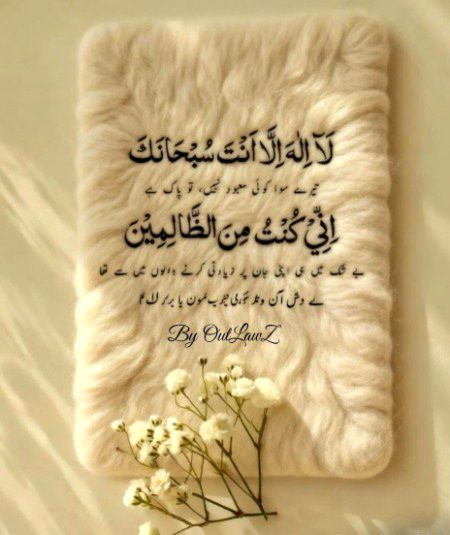 لَآ اِلٰهَ اِلَّا اَنْتَ سُبْحَانَكَ
تیرے سوا کوئی معبود نہیں، تو پاک ہے
اِنِّيْ كُنْتُ مِنَ الظَّالِمِيْنَ
بے شک میں ہی اپنی جان پر زیادتی کرنے والوں میں سے تھا
By OutLawZ